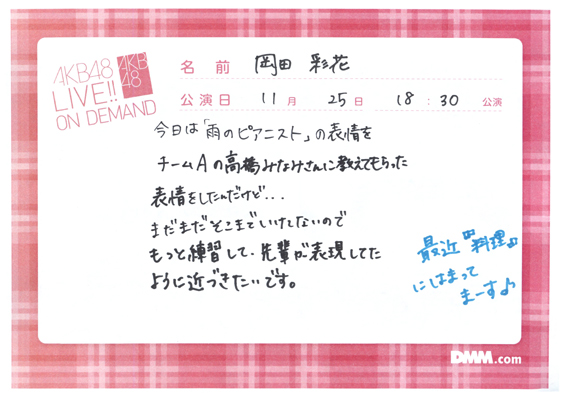 AKB48
LIVE!!
ON DEMAND
AKB
48
名前 岡田 彩花
公演日 11月 25日 18:30 公演
今日は「雨のピアニスト」の表情を
チームAの高橋みなみさんに教えてもらった
表情をしたんだけど...
まだまだそこまでいけてないので
もっと練習して、先輩が表現してた
ように近づきたいです。
最近『料理』
にはまって
まーす♪
DMM.com